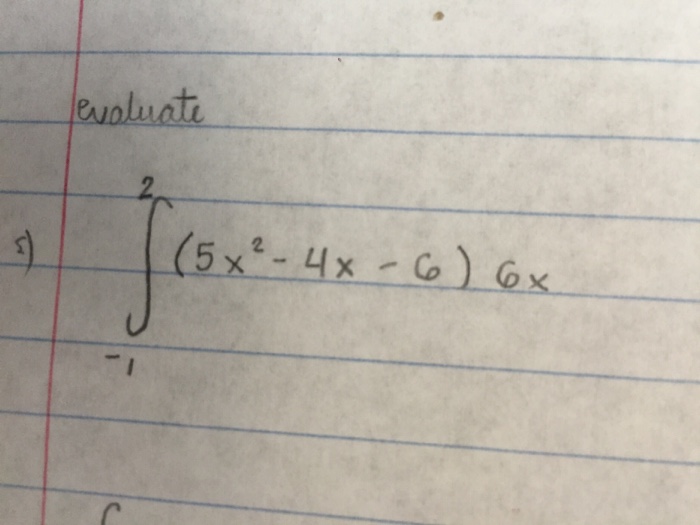 evaluate
5) ∫₋₁² (5x² - 4x - 6) 6x